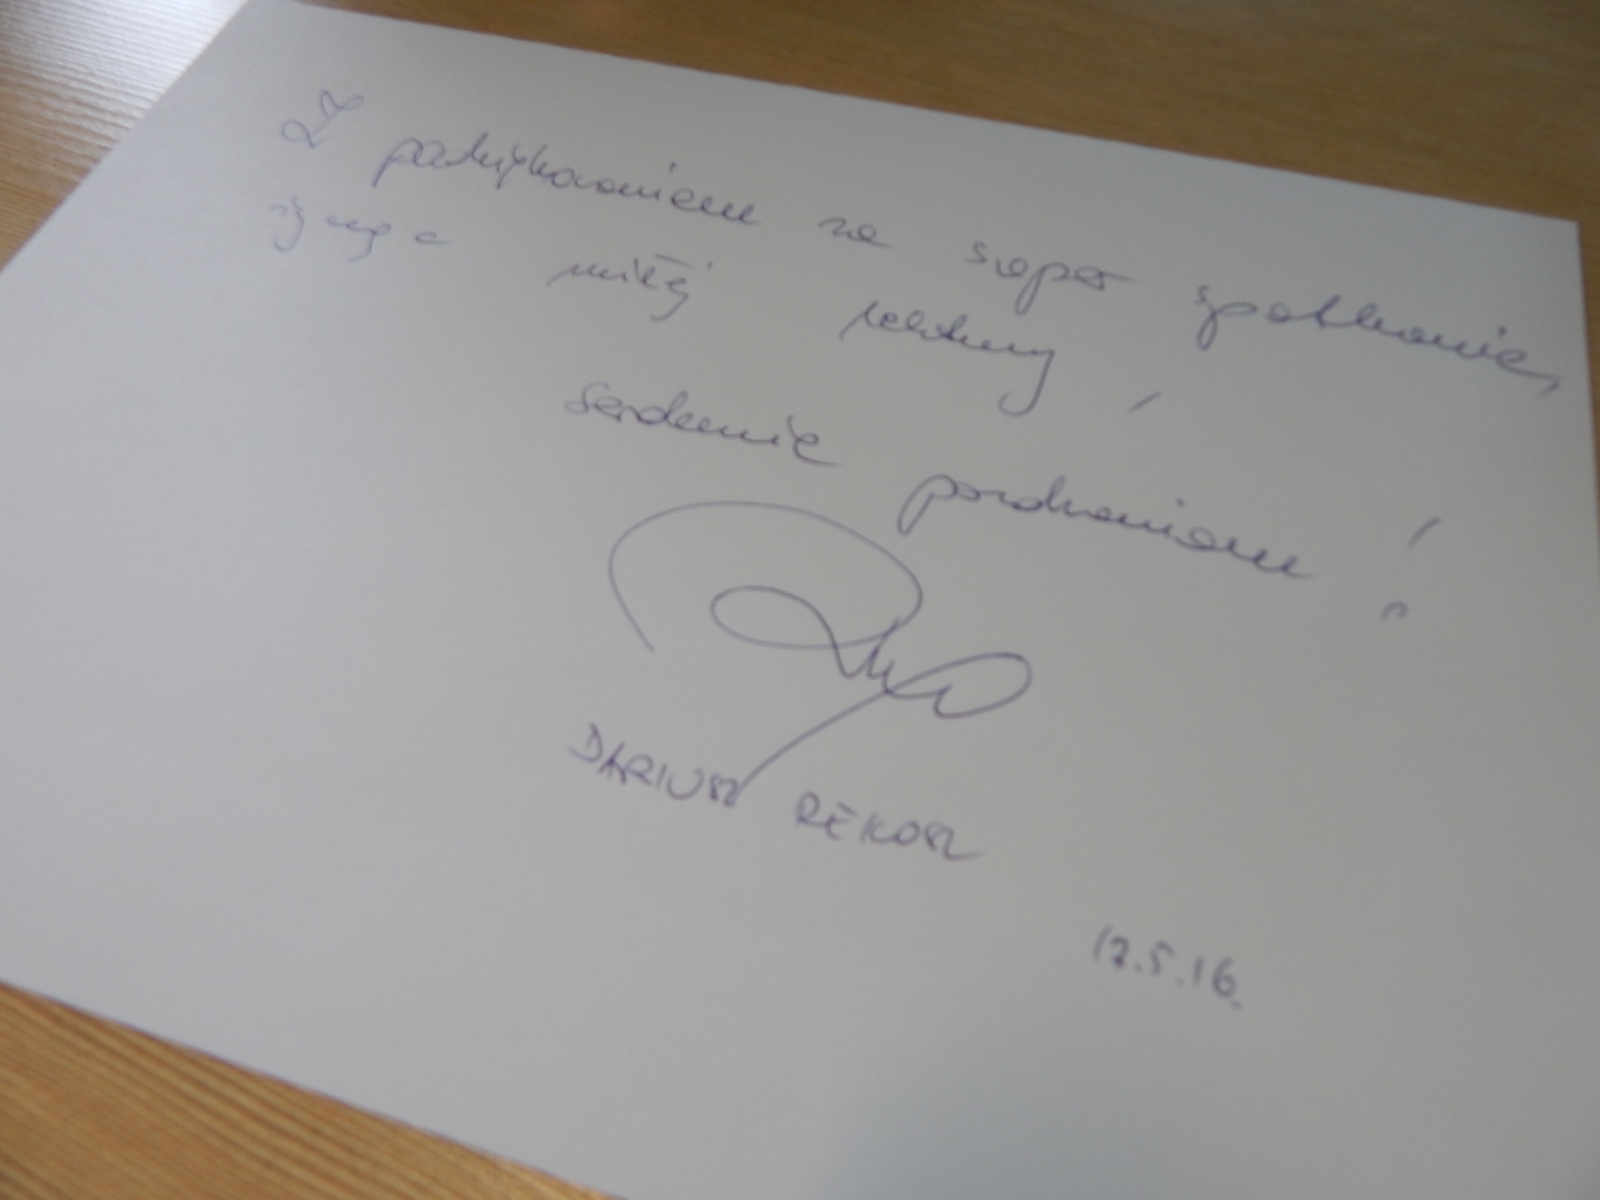 Z podziękowaniem za super spotkanie,
życzę miłej lektury i
serdecznie pozdrawiam!
DARIUSZ REKOSZ
12.5.16.